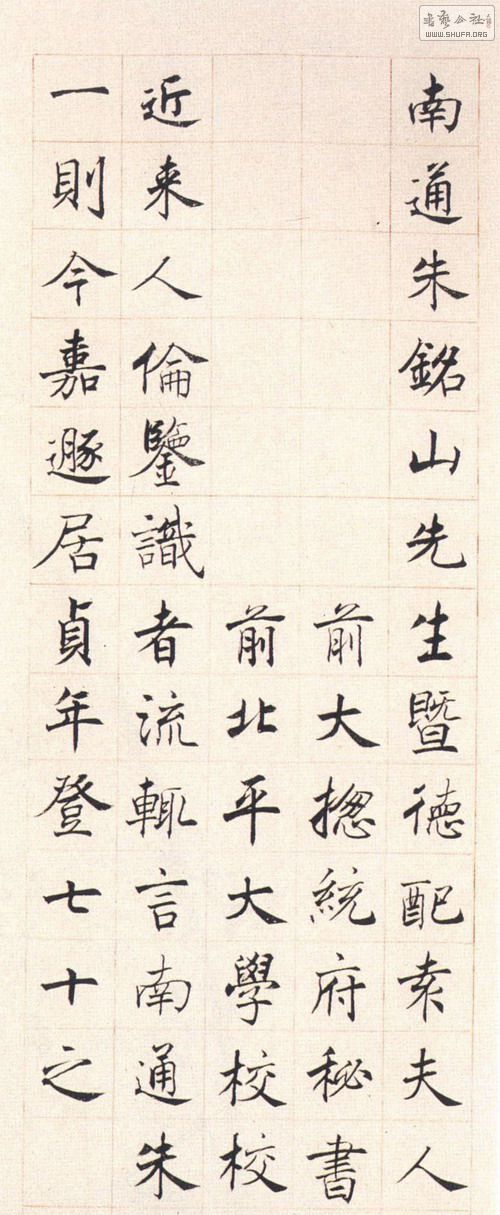 南通朱銘山先生暨德配袁夫人
前大揔統府秘書
前北平大學校校
近来人倫鑒識者流輙言南通朱
一則今嘉遯居貞年登七十之
書藝公社
WWW.SHUFA.ORG